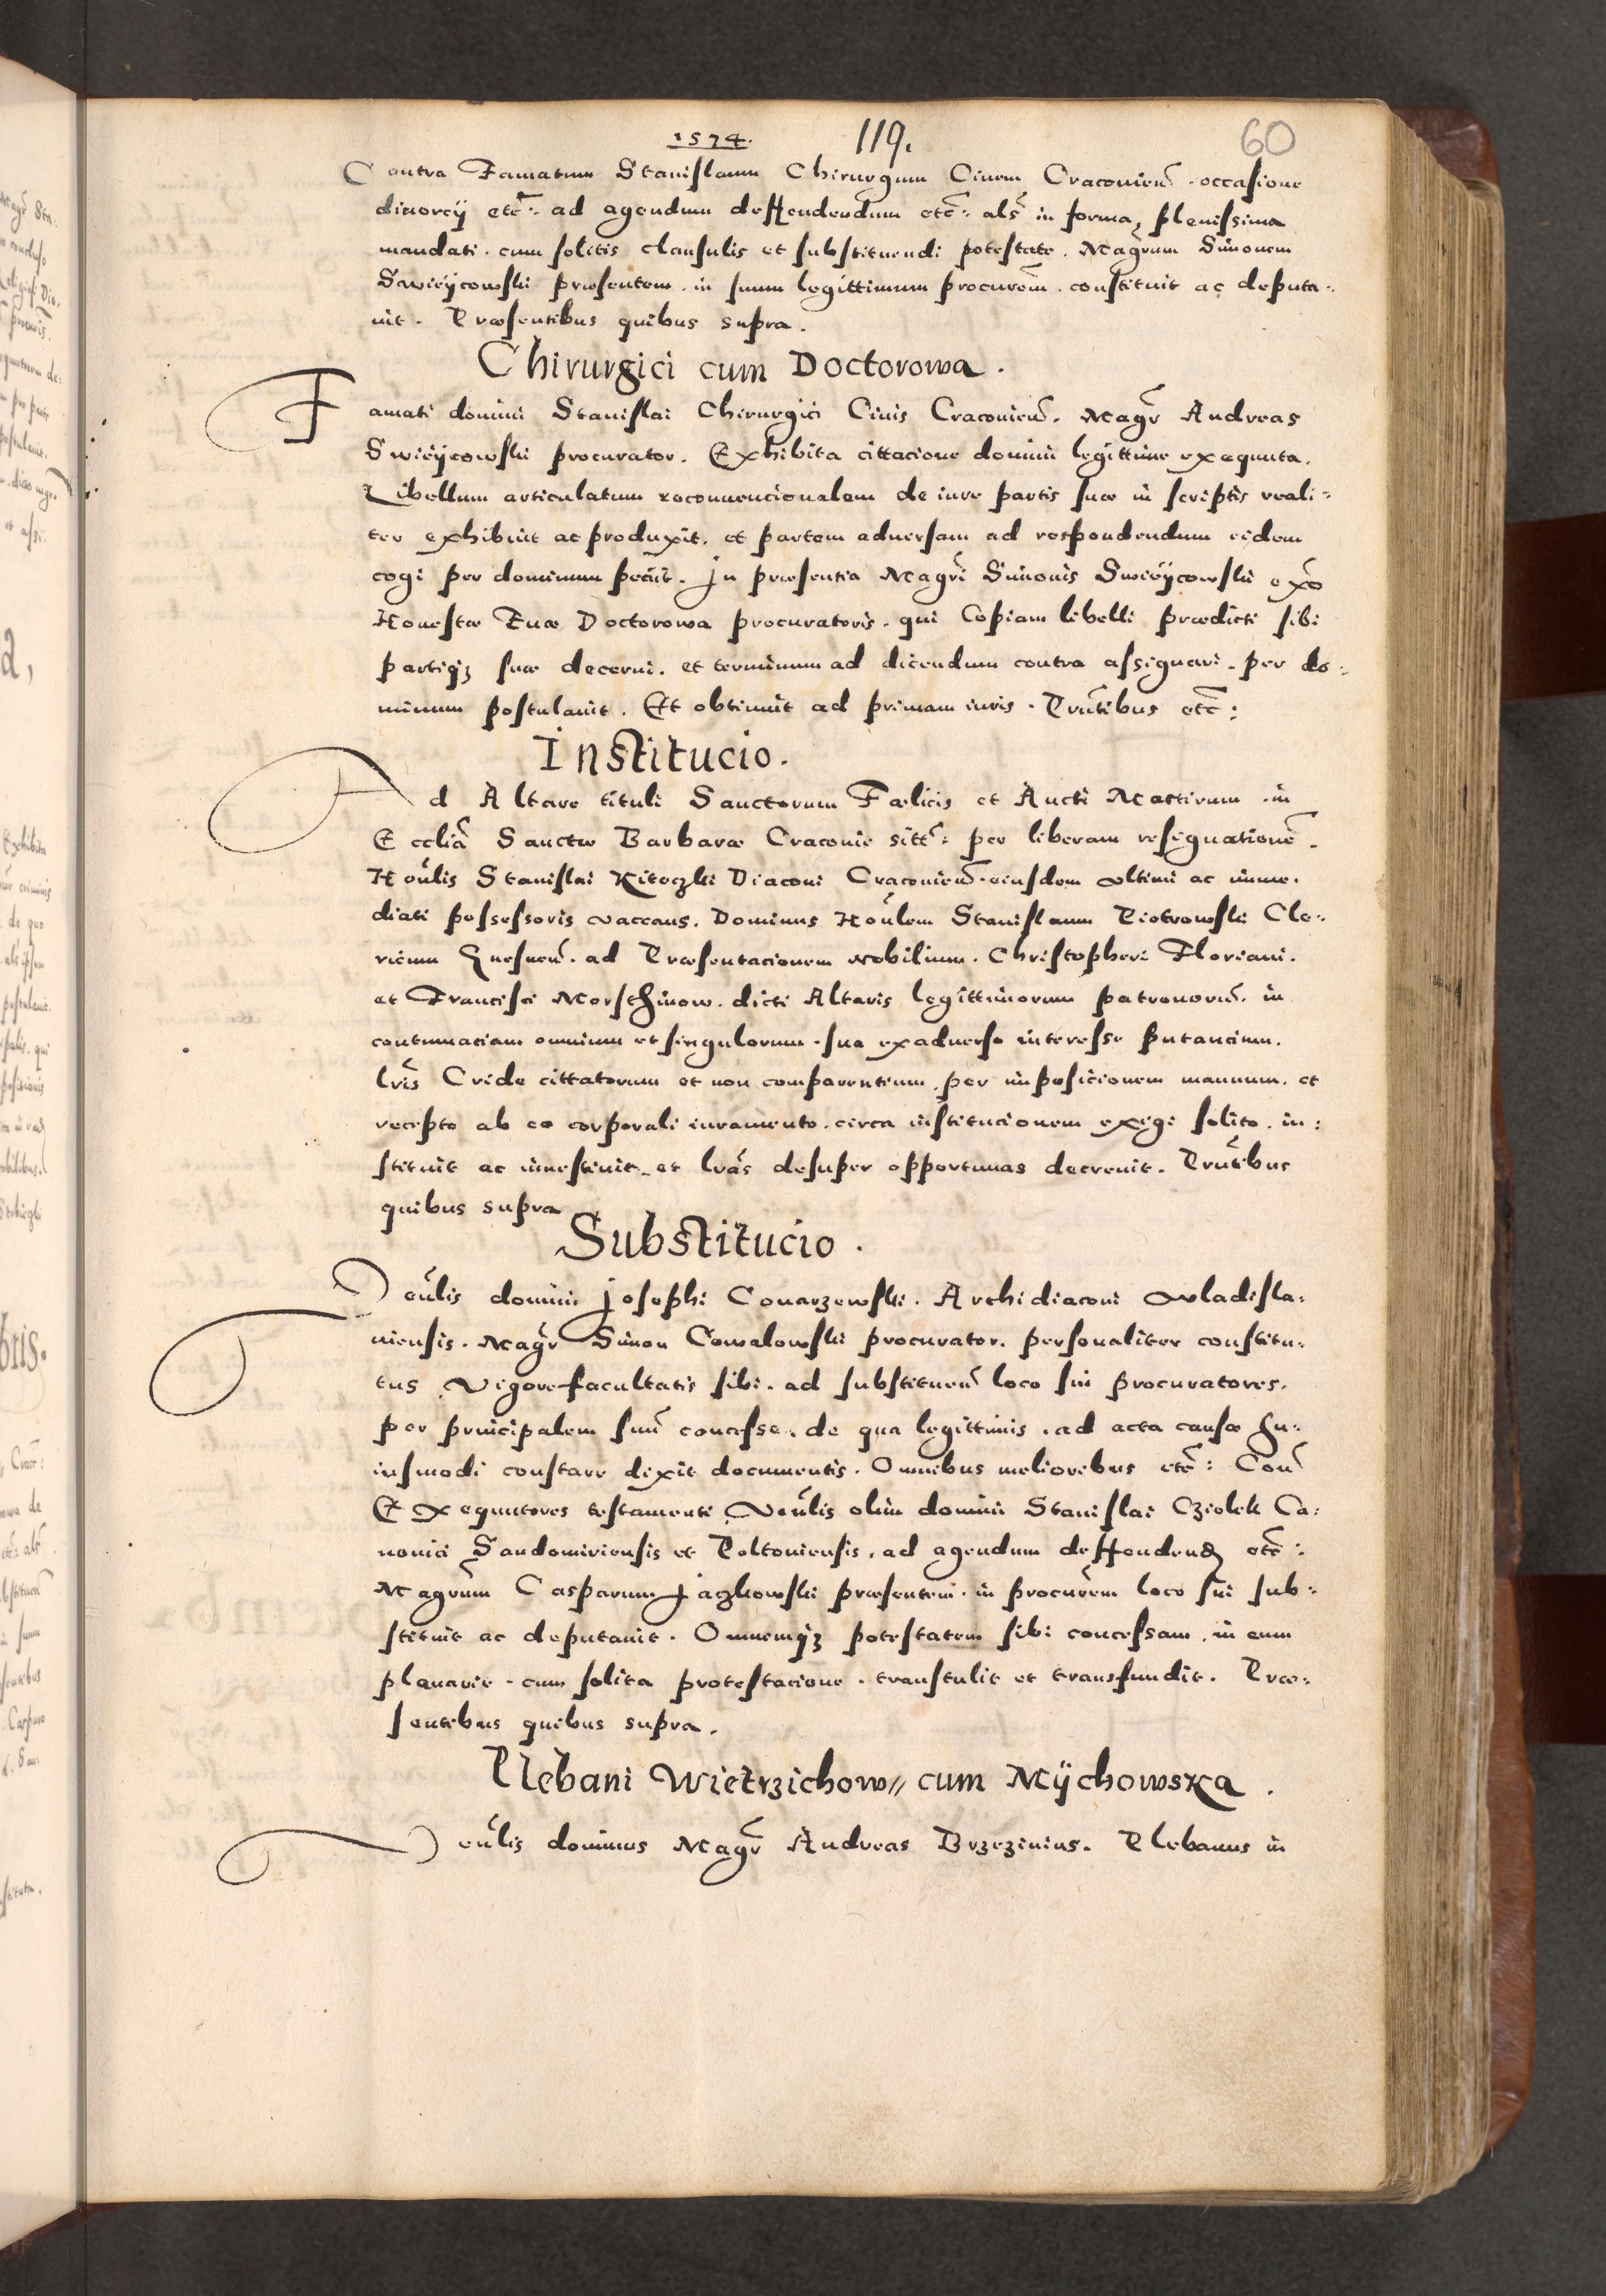 1574. 119. 60
Contra Famatum Stanislaum Chirurgum Civem Cracovien̄ · occasione
divorcÿ etc̄: ad agendum deffendendum etc̄: als̄ in forma, plenissima
mandati · cum solitis clausulis et substituendi potestate. Magr̄um Simonem
Swieÿcowski præsentem · in suum legittimum procurēm · constituit ac deputa:
uit · Præsentibus quibus supra.
Chirurgici cum Doctorowa.
Famati domini Stanislai Chirurgici Civis Cracovien̄. Magr̄ Andreas
Swieÿcowski procurator. Exhibita cittacione domini legittime exequuta.
Libellum articulatum reconvencionalem de iure partis suæ in scriptis reali:
ter exhibuit ac produxit. et partem adversam ad respondendum eidem
cogi per dominum peciit. In præsentia Magr̄i Simonis Swieÿcowski ex̄o
Honestæ Evæ Doctorowa procuratoris. qui Copiam libelli prædicti sibi
partiqz suæ decerni. et terminum ad dicendum contra assignari. per do:
minum postulavit. Et obtinuit ad primam iuris · Prn̄tibus etc̄:
Institucio.
Ad Altare tituli Sanctorum Fælicis et Aucti Martirum · in
Ecclīa Sanctæ Barbaræ Cracovie sitt̄: per liberam resignationē.
Hon̄lis Stanislai Kiteczki Diaconi Cracovien̄. eiusdem ultimi ac imme.
diati possessoris vaccans. Dominus Hon̄lem Stanislaum Piotrowski Cle:
ricum Gnesnen̄. ad Præsentacionem nobilium. Christopheri Floriani.
et Francisci Morschinow. dicti Altaris legittimorum patronorū. in
contumaciam omnium et singulorum · sua exadverso interesse putancium.
lr̄is Cride cittatorum et non comparentium per imposicionem manuum. et
recepto ab eo corporali iuramento. circa institucionem exigi solito. in:
stituit ac investivit. et lr̄as desuper opportunas decrevit. Prn̄tibus
quibus supra
Substitucio.
Ven̄lis domini Josephi Conarzewski. Archidiaconi Vladisla:
viensis. Magr̄ Simon Cowalowski procurator. personaliter constitu:
tus Vigore facultatis sibi. ad substituen̄ loco sui procuratores.
per principalem suū concesse. de qua legittimis. ad acta causæ hu:
iusmodi constare dixit documentis. Omnibus melioribus etc̄: Con̄
Exequutores testamenti Ven̄lis olim domini Stanislai Cziolek Ca:
nonici Sandomiriensis et Poltoviensis. ad agendum deffendend etc̄:
Magr̄um Casparum Jaczkowski præsentem. in procurēm loco sui sub:
stituit ac deputavit. Omnemqz potestatem sibi concessam. in eum
plenarie. cum solita protestacione. transtulit et transfundit. Præ:
sentibus quibus supra.
Plebani Wietrzichow// cum Mÿchowska.
Ven̄lis dominus Magr̄ Andreas Brzezinius. Plebanus in